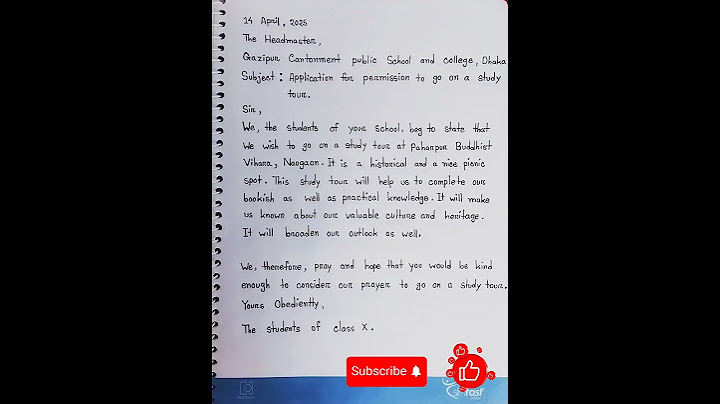 14 April, 2025
The Headmaster,
Gazipur Cantonment public School and college, Dhaka
Subject : Application for permission to go on a study
tour.
Sir,
We, the students of your school, beg to state that
we wish to go on a study tour at Paharpur Buddhist
Vihara, Naogaon. It is a historical and a nice picnic
spot. This study tour will help us to complete our
bookish as well as practical knowledge. It will make
us known about our valuable culture and heritage.
It will broaden our outlook as well.
We, therefore, pray and hope that you would be kind
enough to consider our prayer to go on a study tour.
Yours Obediently,
The students of class X.
Subscribe